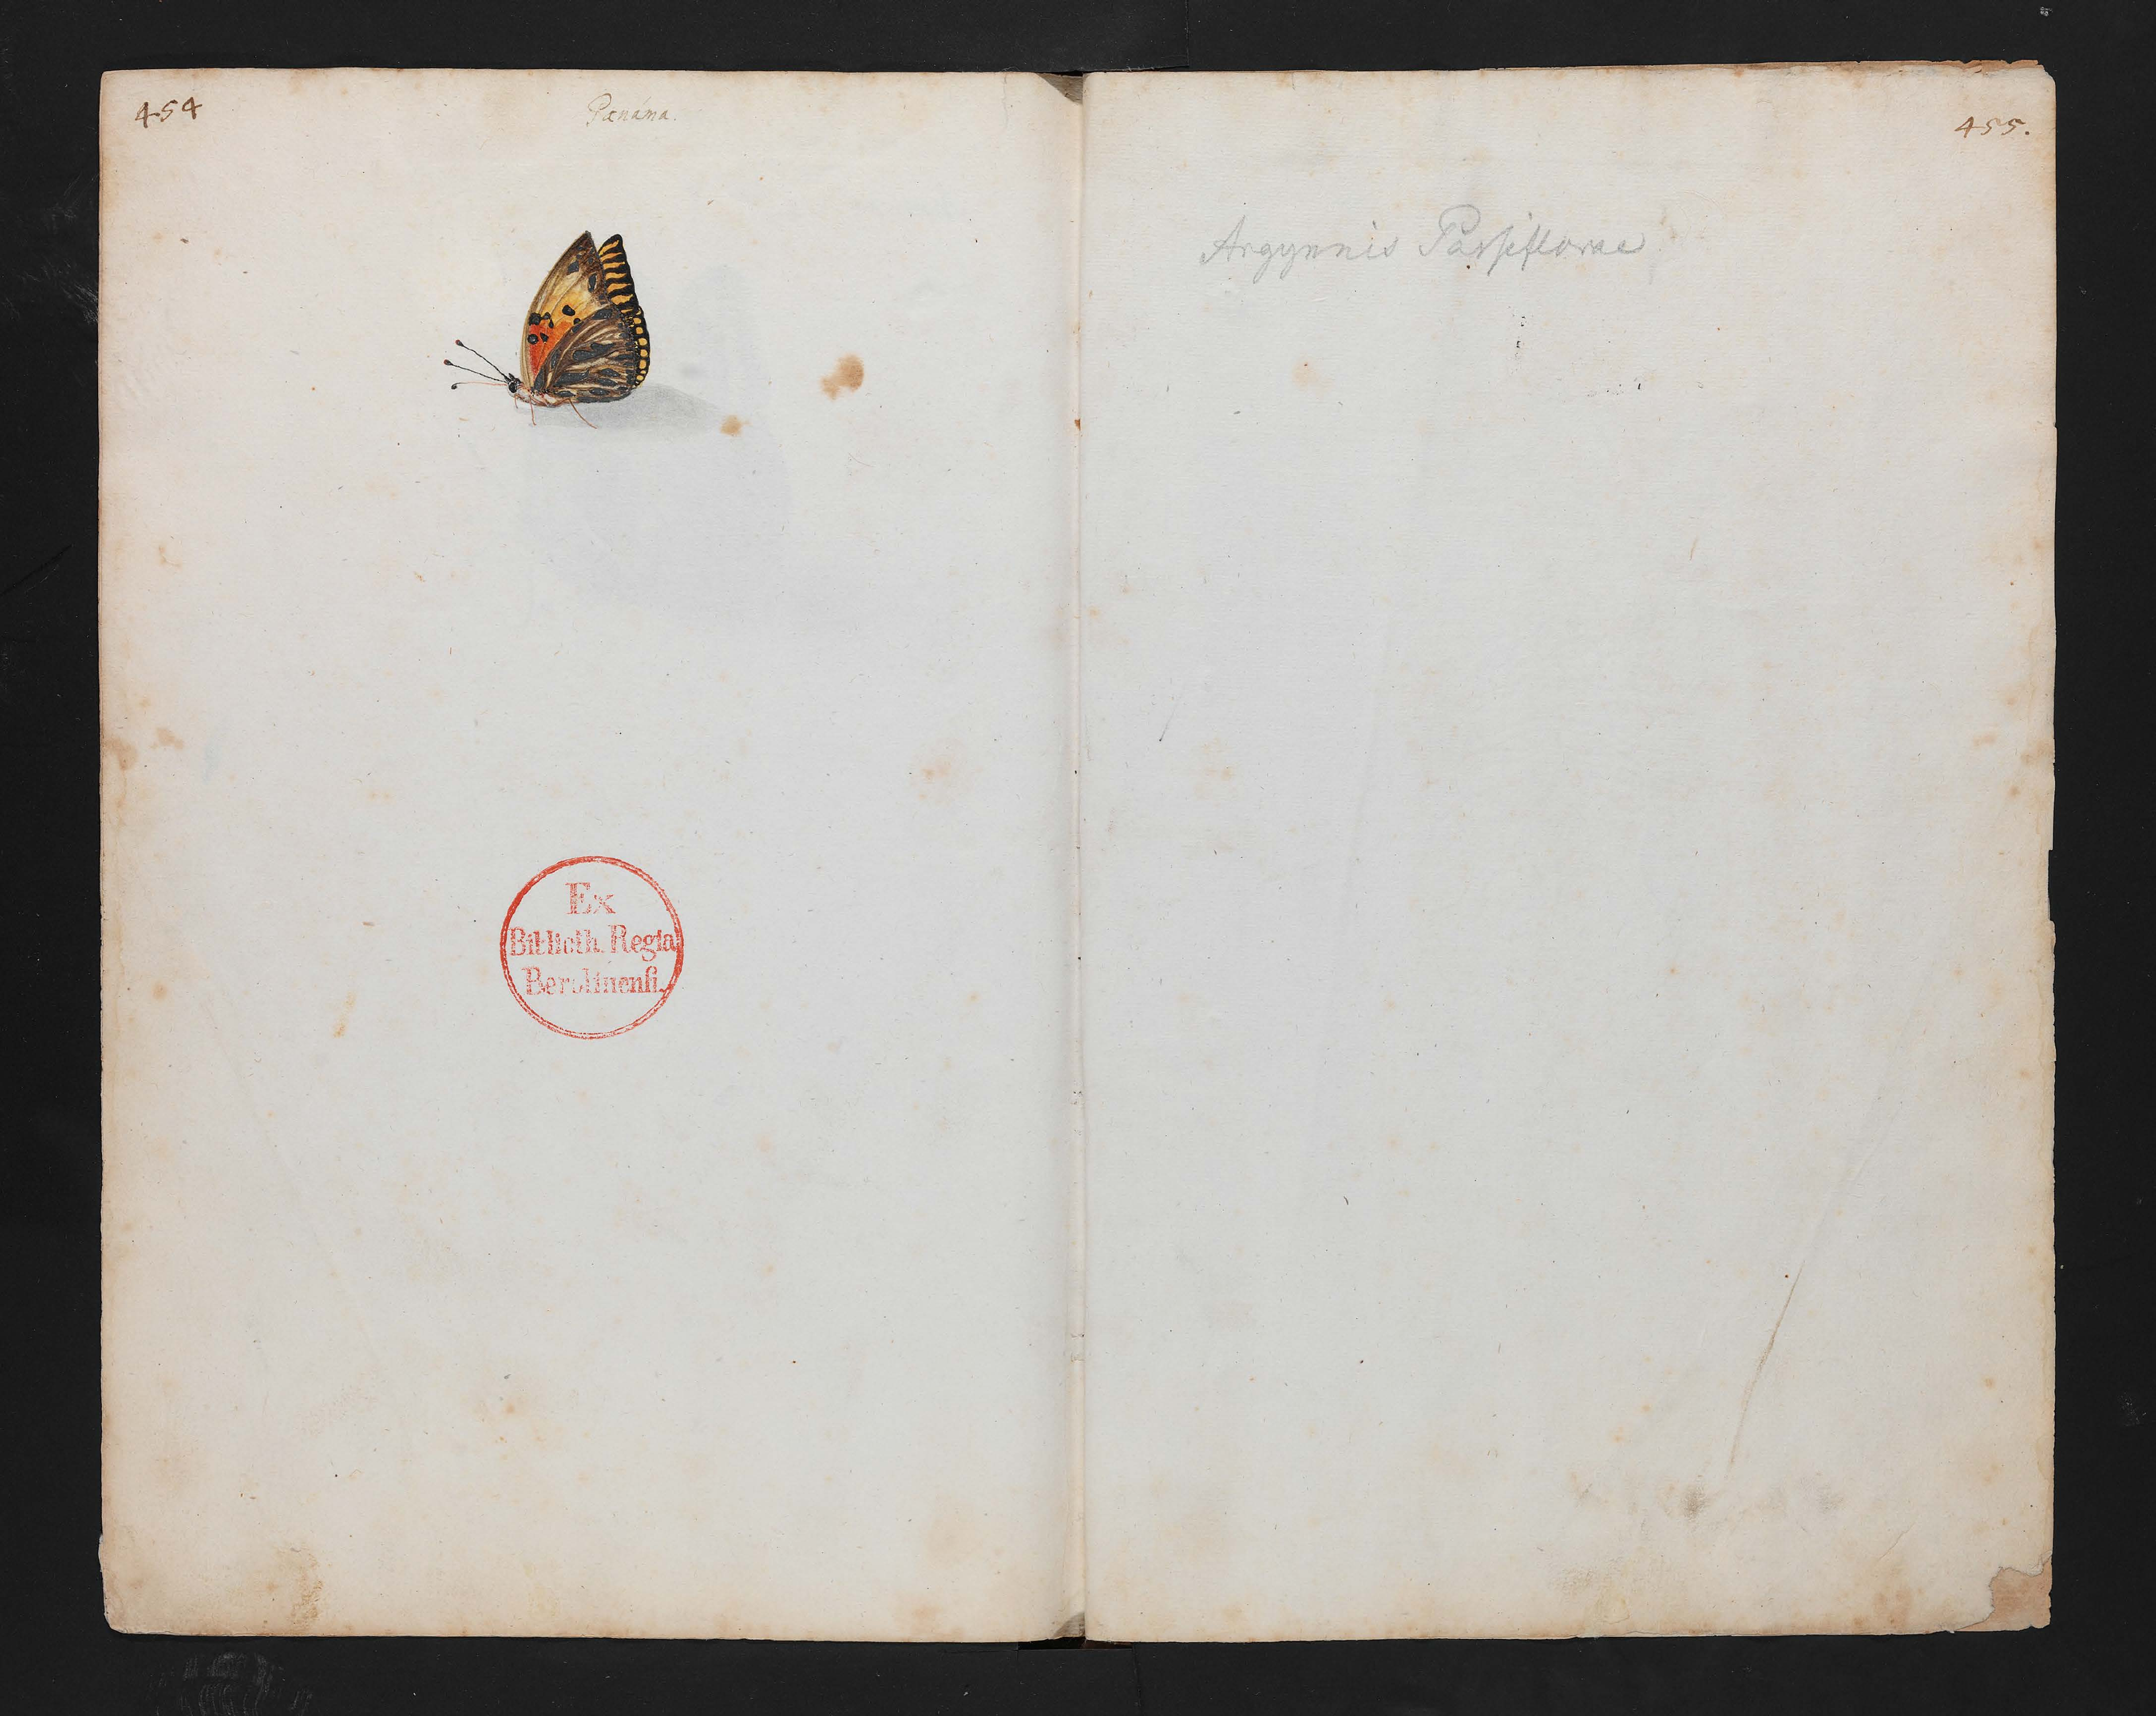 454
Panáma.
Ex
Biblioth. Regia
Berolinenſi.
455.
Argynnis Passiflorae